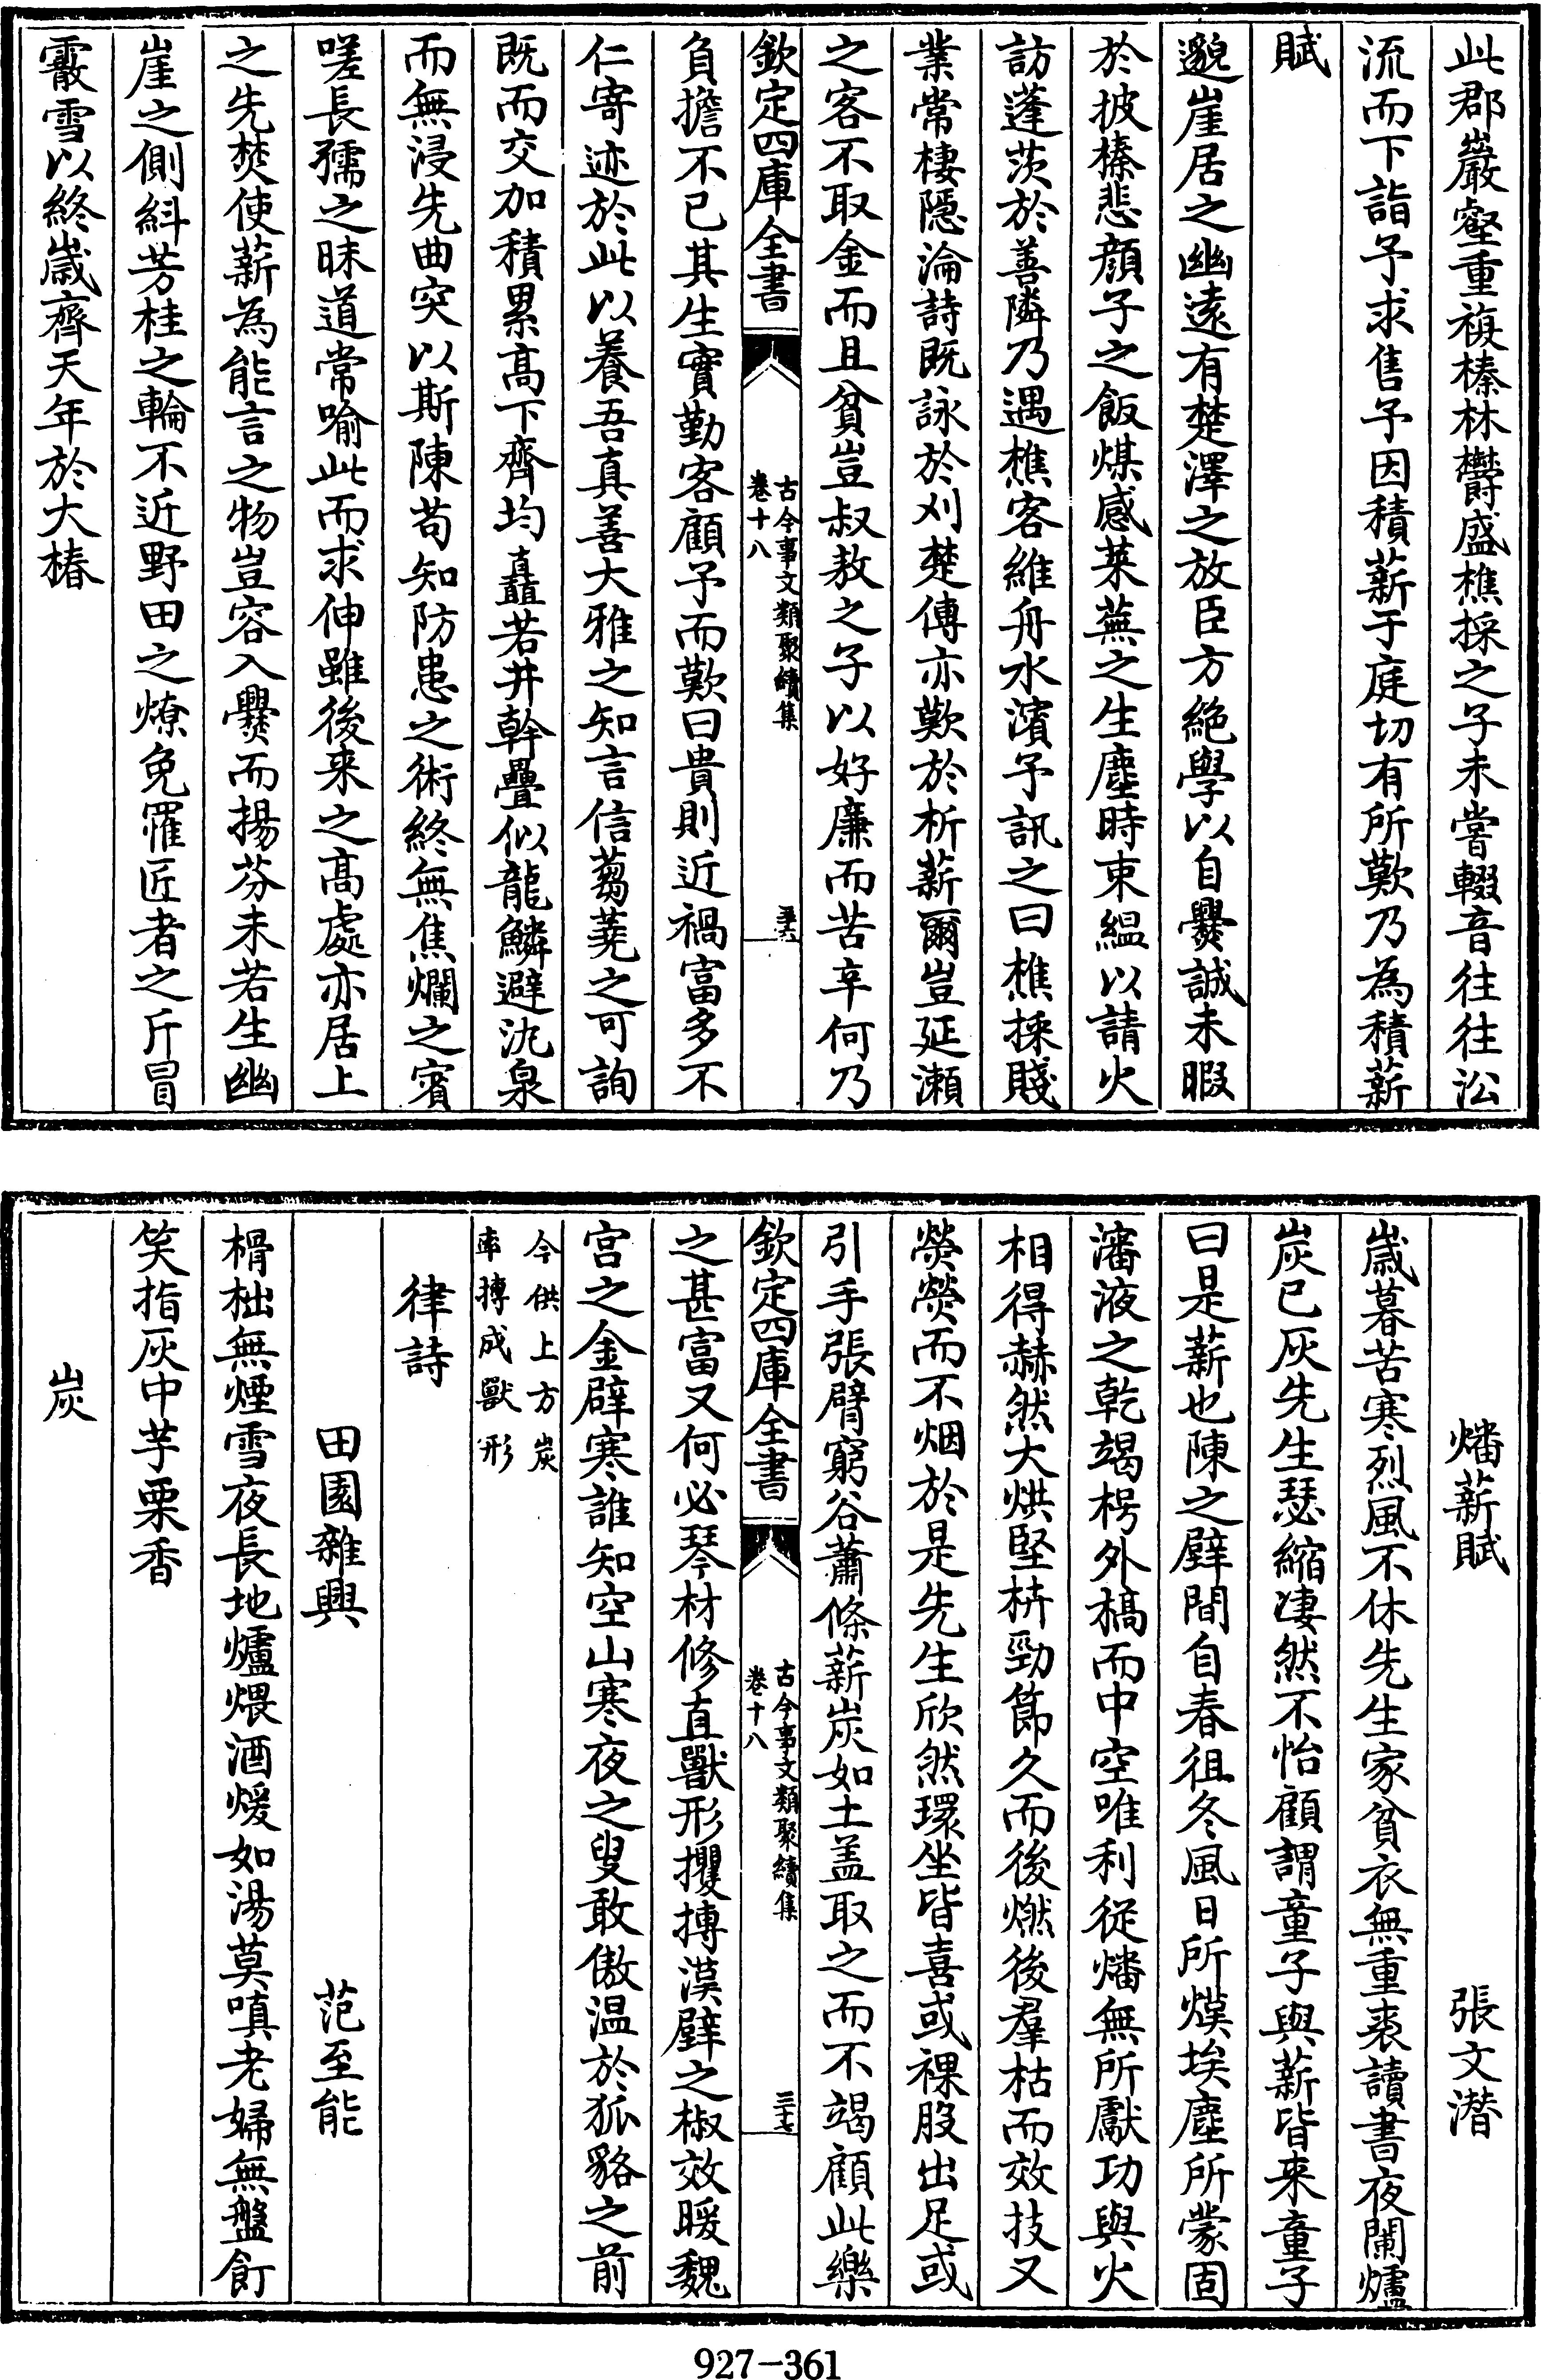 此郡巖壑重複榛林欝盛樵採之子未嘗輟音往往㳂
流而下詣予求售予因積薪于庭切有所歎乃為積薪
賦
邈崖居之幽遠有楚澤之放臣方絶學以自爨誠未暇
於披榛悲顔子之飯煤感萊蕪之生塵時束緼以請火
訪蓬茨於善隣乃遇樵客維舟水濱予訊之曰樵採賤
業常棲隠淪詩既詠於刈楚傳亦歎於析薪爾豈延瀬
之客不取金而且貧豈叔敖之子以好廉而苦辛何乃
欽定四庫全書
古今事文類聚續集
卷十八
三十六
負擔不已其生實勤客顧予而歎曰貴則近禍富多不
仁寄迹於此以養吾真善大雅之知言信蒭蕘之可詢
既而交加積累高下齊均矗若井幹疊似龍鱗避氿泉
而無浸先曲突以斯陳茍知防患之術終無焦爛之賓
嗟長孺之昧道常喻此而求伸雖後来之高處亦居上
之先焚使薪為能言之物豈容入爨而揚芬未若生幽
崖之側糾芳桂之輪不近野田之燎免罹匠者之斤冒
霰雪以終嵗齊天年於大椿
燔薪賦 張文潜
嵗暮苦寒烈風不休先生家貧衣無重裘讀書夜闌爐
炭已灰先生瑟縮凄然不怡顧謂童子與薪皆来童子
曰是薪也陳之壁間自春徂冬風日所熯埃塵所蒙固
瀋液之乾竭枵外槁而中空唯利從燔無所獻功與火
相得赫然大烘堅枿勁節久而後燃後羣枯而效技又
熒熒而不烟於是先生欣然環坐皆喜或裸股出足或
引手張臂窮谷蕭條薪炭如土盖取之而不竭顧此樂
欽定四庫全書
古今事文類聚續集
卷十八
三十七
之甚富又何必琴材修直獸形攫搏漢壁之椒效暖魏
宫之金辟寒誰知空山寒夜之叟敢傲温於狐貉之前
今供上方炭
率摶成獸形
律詩
田園雜興 范至能
榾柮無煙雪夜長地爐煨酒煖如湯莫嗔老婦無盤飣
笑指灰中芋栗香
炭
927-361